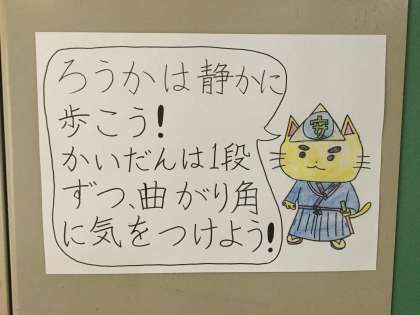 ろうかは静かに
歩こう!
かいだんは1段
ずつ、曲がり角
に気をつけよう!
安